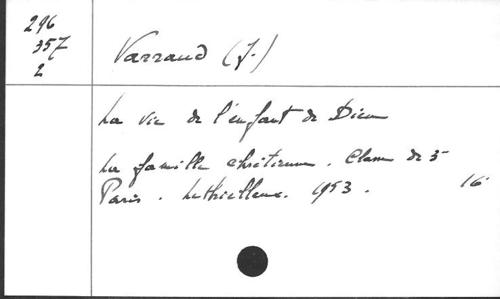 296
357
2
Varraud (J.)
La vie de l'enfant de Dieu
La famille chrétienne. Classe de 5
Paris. Lethielleux. 1953. 16